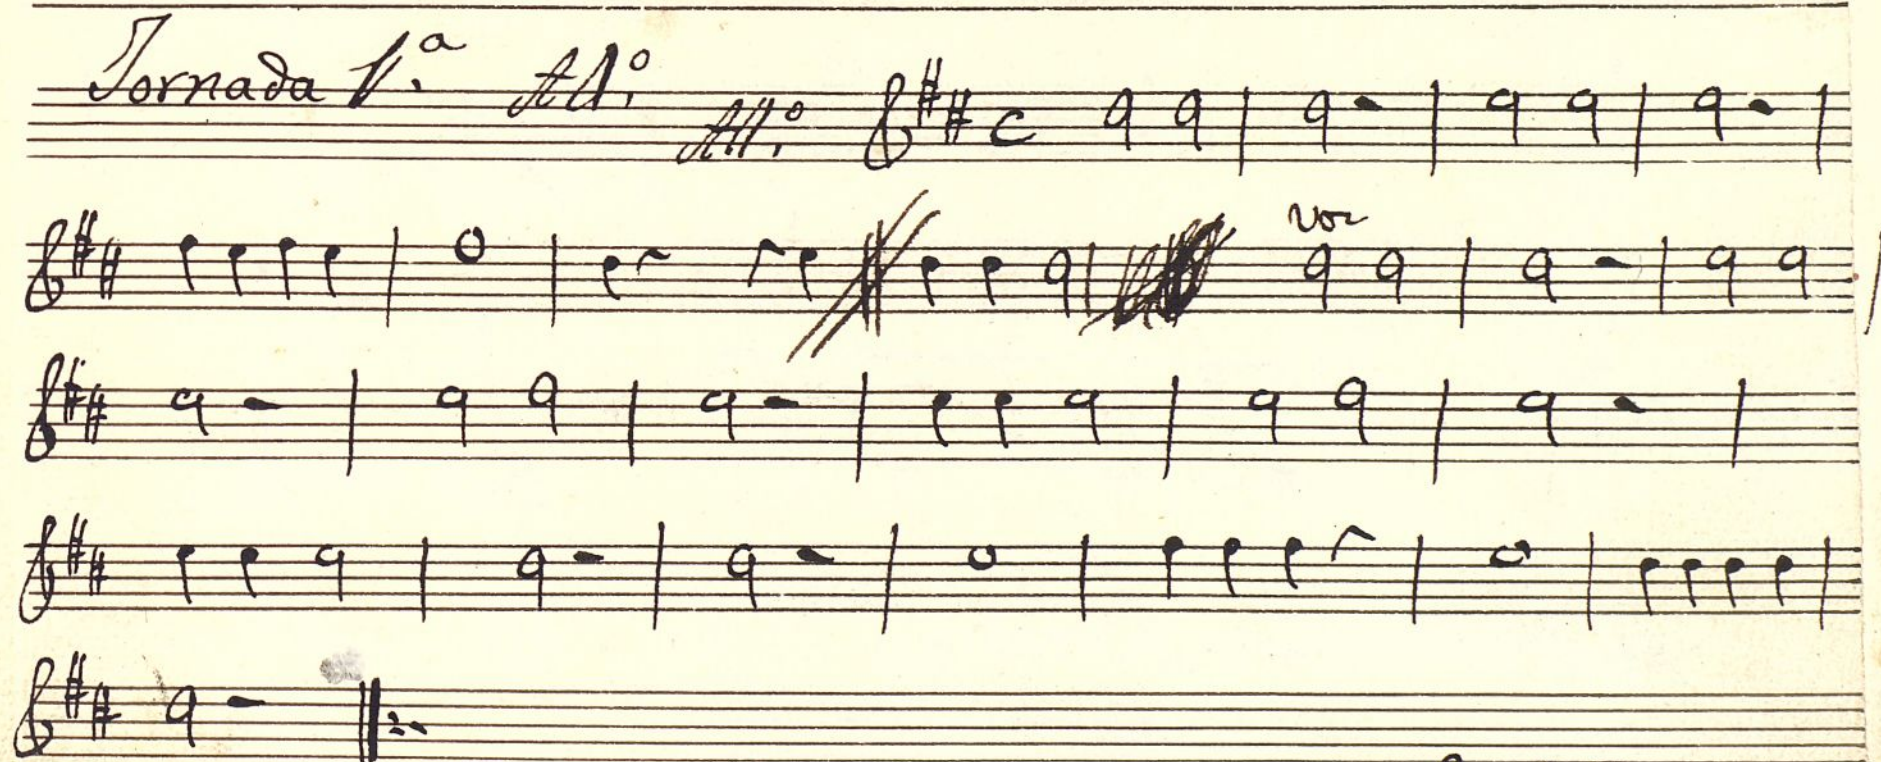 Jornada 1.ª A 1.º
All.º
voz